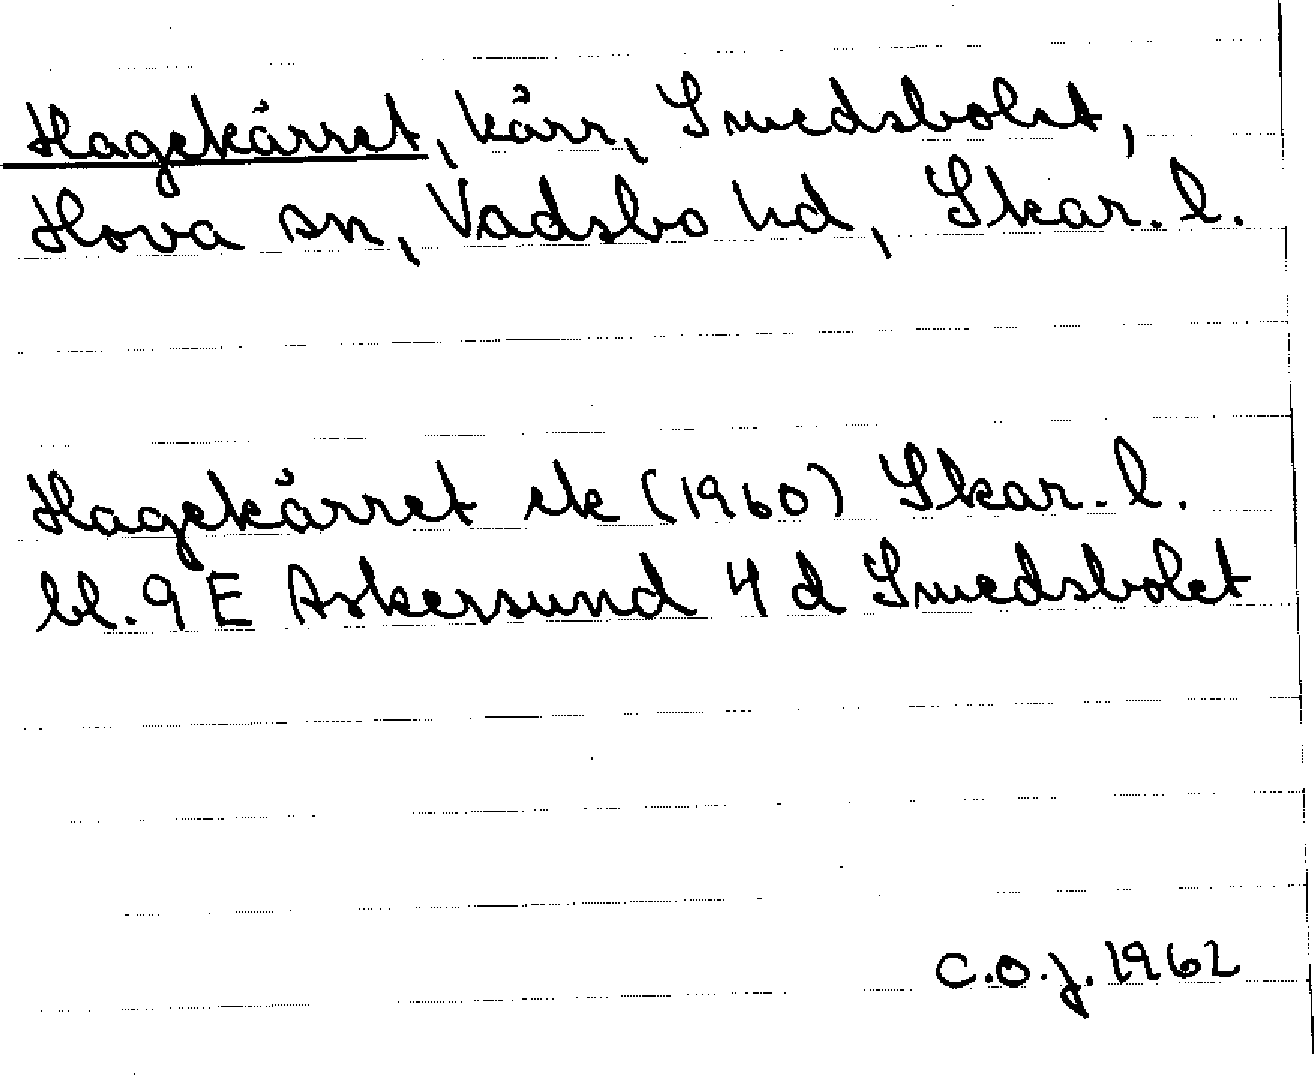 Hagekärret, kärr, Smedsbolet,
Hova sn, Vadsbo hd, Skar. l.
Hagekärret ek (1960) Skar. l.
bl. 9 E Askersund 4 d Smedsbolet
C.O.J. 1962